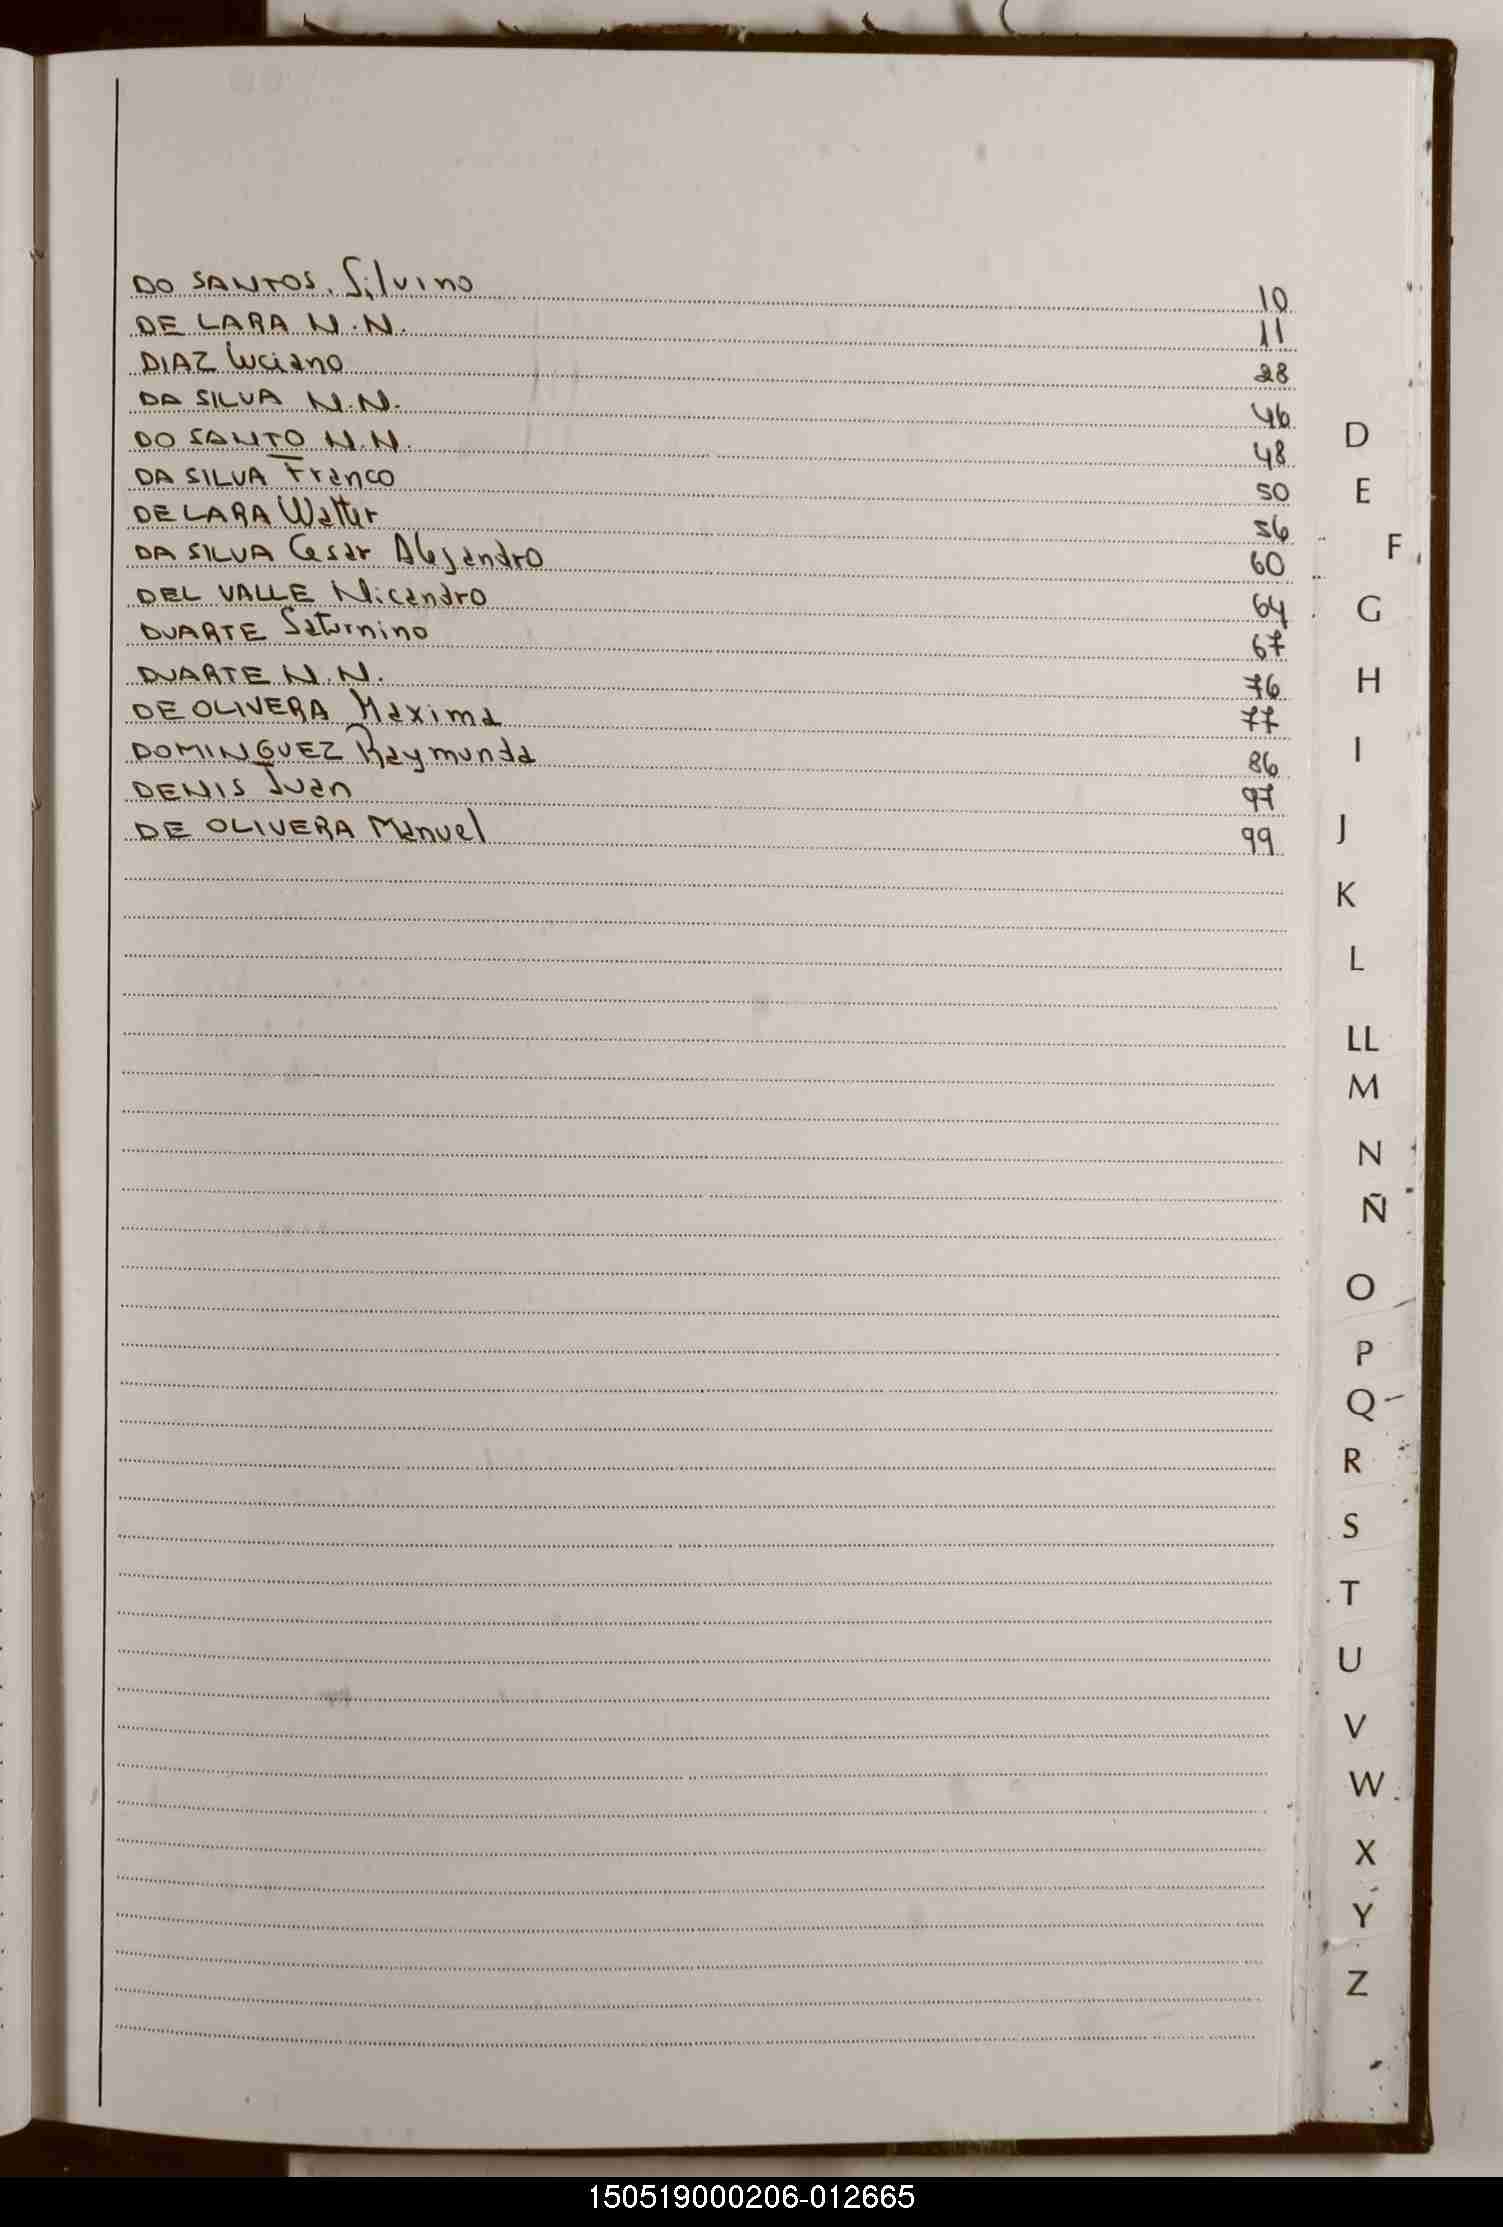 DO SANTOS. Silvino 10
DE LARA N.N. 11
DIAZ Luciano 28
DA SILVA N.N. 46
DO SANTO N.N. 48
DA SILVA Franco 50
DE LARA Walter 56
DA SILVA Cesar Alejandro 60
DEL VALLE Nicandro 64
DUARTE Saturnino 67
DUARTE N.N. 76
DE OLIVERA Maxima 77
DOMINGUEZ Raymunda 86
DENIS Juan 97
DE OLIVERA Manuel 99
D
E
F
G
H
I
J
K
L
LL
M
N
Ñ
O
P
Q
R
S
T
U
V
W
X
Y
Z
150519000206-012665